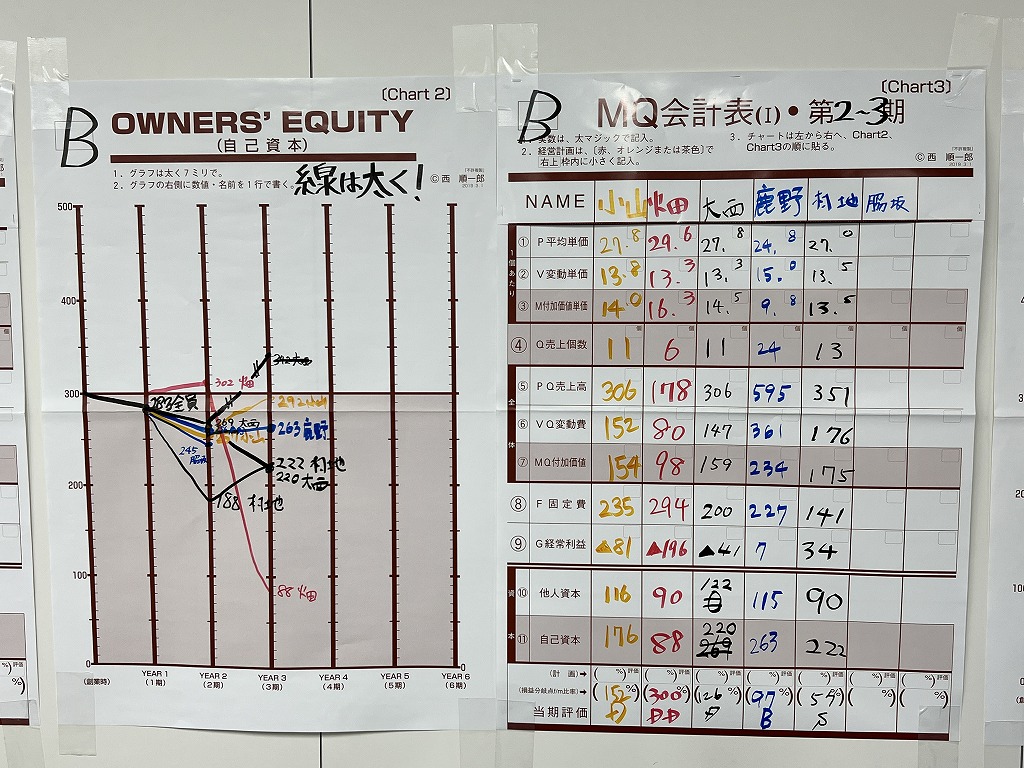 〔Chart 2〕
B
OWNERS' EQUITY
(自己資本)
1．グラフは太く7ミリで。
2．グラフの右側に数値・名前を1行で書く。
線は太く!
© 西 順一郎
500
400
300
200
100
0
0
283全員
302 畑
342大西
292小山
269 大西
263 鹿野
245
脇坂
222 村地
220 大西
188 村地
88 畑
(創業時)
YEAR 1
(1期)
YEAR 2
(2期)
YEAR 3
(3期)
YEAR 4
(4期)
YEAR 5
(5期)
YEAR 6
(6期)
〔Chart3〕
B
MQ会計表(I)・第2~3期
1．実数は、太マジックで記入。
2．経営計画は、〔赤、オレンジまたは茶色〕で
右上枠内に小さく記入。
3．チャートは左から右へ、Chart2、
Chart3の順に貼る。
© 西 順一郎
NAME 小山 畑 大西 鹿野 村地 脇坂
1個あたり
① P平均単価 27.8 29.6 27.8 24.8 27.0
② V変動単価 13.8 13.3 13.3 15.0 13.5
③ M付加価値単価 14.0 16.3 14.5 9.8 13.5
④ Q売上個数 11 6 11 24 13
全体
⑤ PQ売上高 306 178 306 595 351
⑥ VQ変動費 152 80 147 361 176
⑦ MQ付加価値 154 98 159 234 175
⑧ F 固定費 235 294 200 227 141
⑨ G経常利益 ▲81 ▲196 ▲41 7 34
資本
⑩ 他人資本 116 90 122 115 90
⑪ 自己資本 176 88 220 263 222
(計画)➡ ( %)評価 ( %)評価 ( %)評価 ( %)評価 ( %)評価 ( %)評価 ( %)評価
(損益分岐点f/m比率)➡ (152%) (300%) (126%) (97%) ( %) ( %)
当期評価 D DD D B S